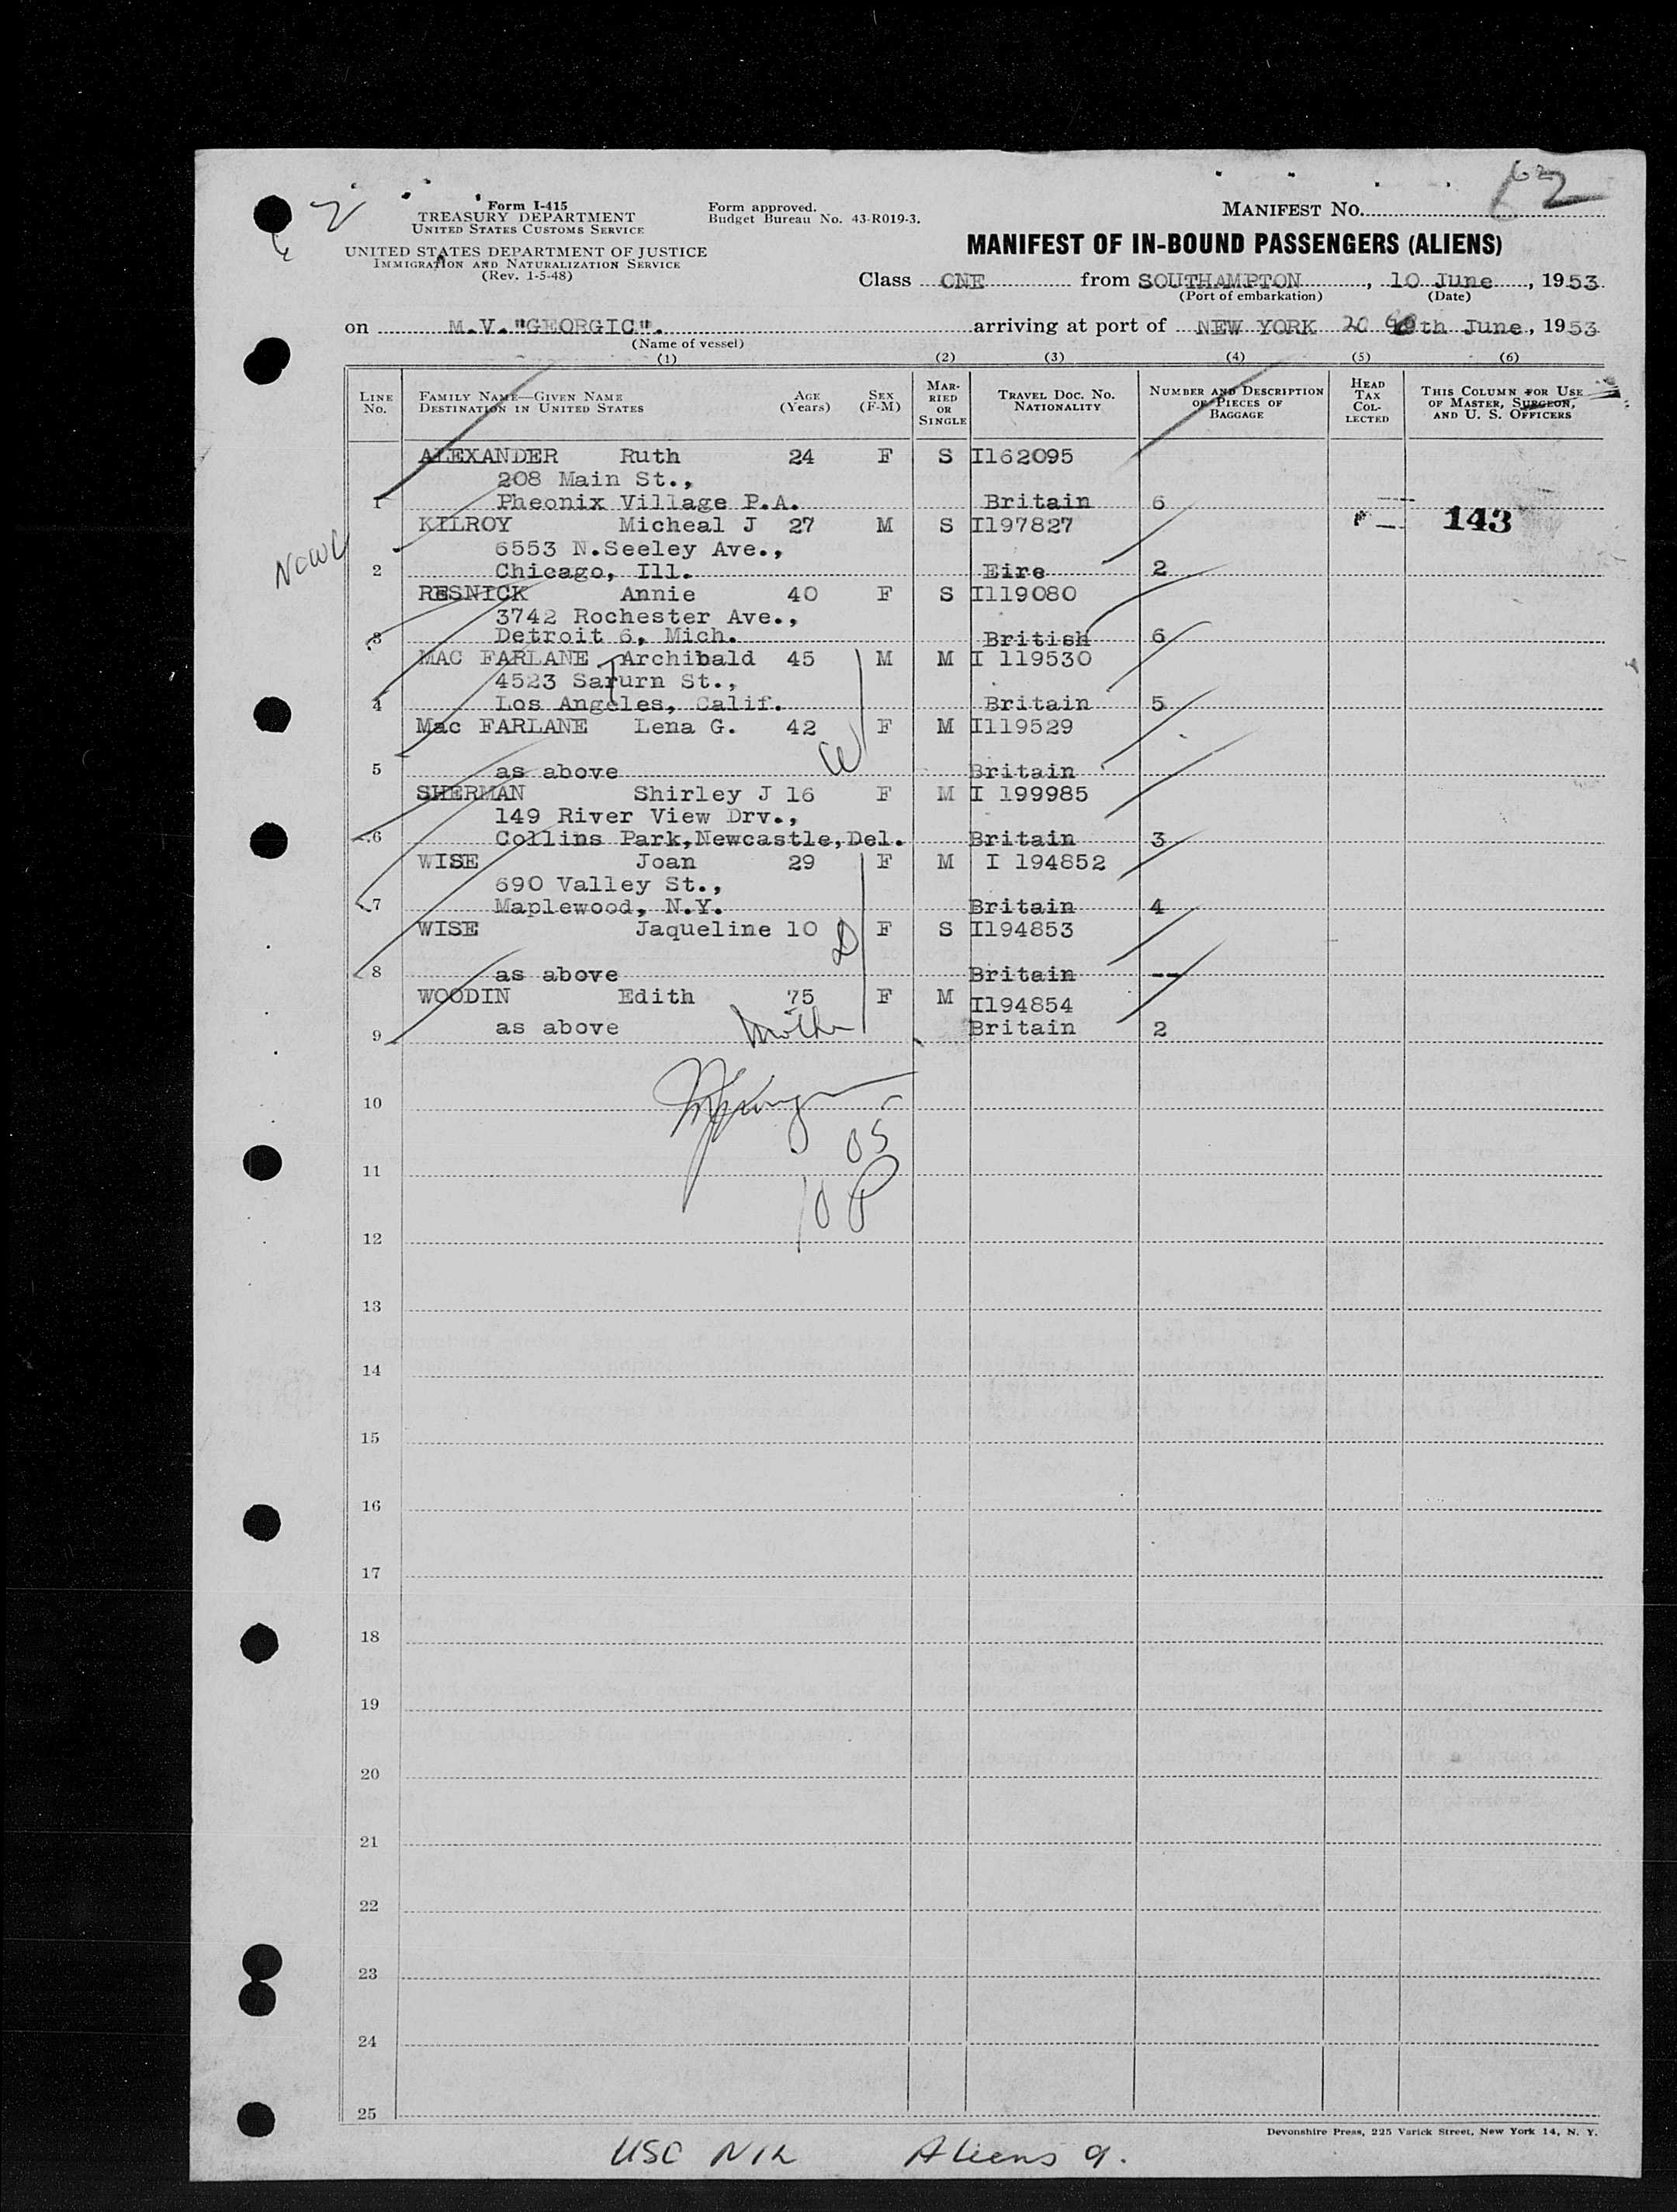 2
62
Form I-415
TREASURY DEPARTMENT
UNITED STATES CUSTOMS SERVICE
UNITED STATES DEPARTMENT OF JUSTICE
IMMIGRATION AND NATURALIZATION SERVICE
(Rev. 1-5-48)
Form approved.
Budget Bureau No. 43-R019-3.
MANIFEST No.
MANIFEST OF IN-BOUND PASSENGERS (ALIENS)
Class ONE from SOUTHAMPTON, 10 June, 1953
(Port of embarkation) (Date)
on M.V. "GEORGIC". arriving at port of NEW YORK 20 th June, 1953
(Name of vessel)
(1) (2) (3) (4) (5) (6)
LINE No. FAMILY NAME—GIVEN NAME DESTINATION IN UNITED STATES AGE (Years) SEX (F-M) MARRIED OR SINGLE TRAVEL DOC. NO. NATIONALITY NUMBER AND DESCRIPTION OF PIECES OF BAGGAGE HEAD TAX COLLECTED THIS COLUMN FOR USE OF MASTER, SURGEON, AND U. S. OFFICERS
ALEXANDER Ruth 24 F S I162095
208 Main St.,
1 Pheonix Village P.A. Britain 6
KILROY Micheal J 27 M S I197827 143
6553 N.Seeley Ave.,
2 Chicago, Ill. Eire 2
RESNICK Annie 40 F S I119080
3742 Rochester Ave.,
3 Detroit 6, Mich. British 6
MAC FARLANE Archibald 45 M M I 119530
4523 Sarurn St.,
T
4 Los Angeles, Calif. Britain 5
Mac FARLANE Lena G. 42 F M I119529
W
5 as above Britain
SHERMAN Shirley J 16 F M I 199985
149 River View Drv.,
6 Collins Park,Newcastle,Del. Britain 3
WISE Joan 29 F M I 194852
690 Valley St.,
7 Maplewood, N.Y. Britain 4
WISE Jaqueline 10 F S I194853
D
8 as above Britain --
WOODIN Edith 75 F M I194854
9 as above Mother Britain 2
10
05
11
10 P
12
13
14
15
16
17
18
19
20
21
22
23
24
25
Devonshire Press, 225 Varick Street, New York 14, N. Y.
USC NIL Aliens 9.